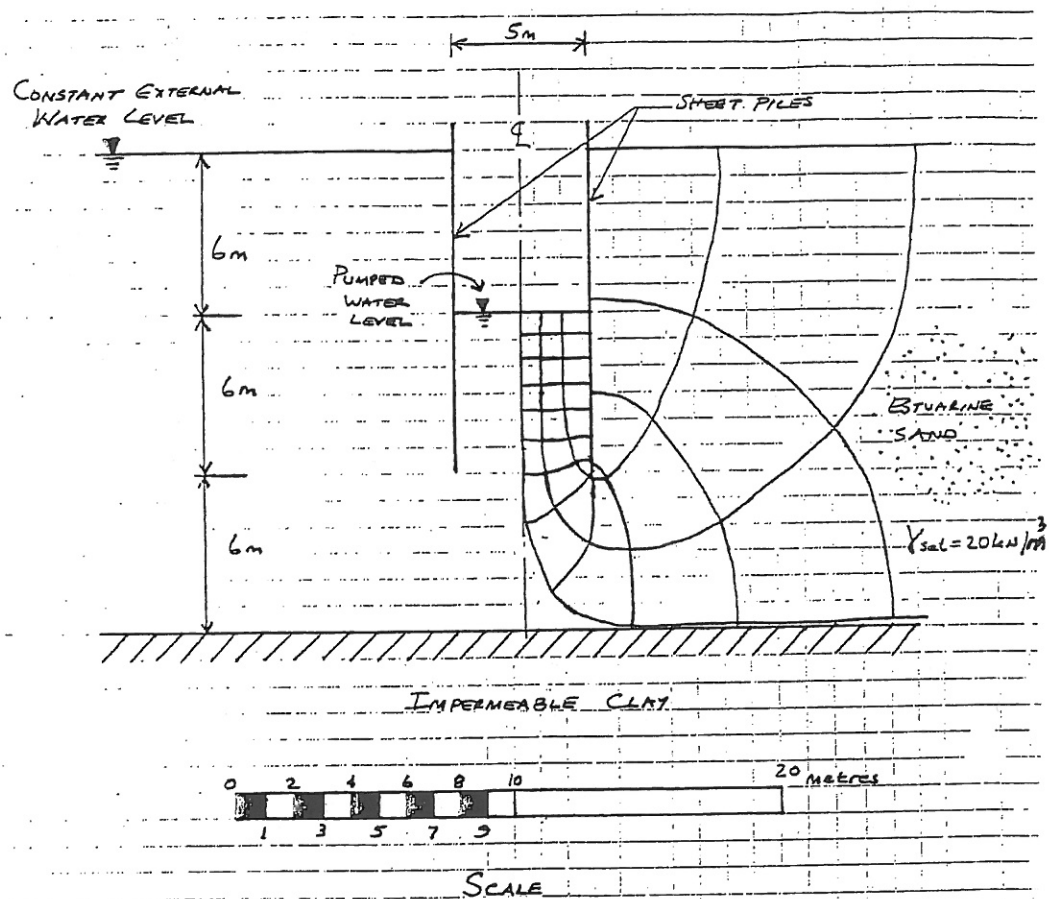 5m
CONSTANT EXTERNAL
WATER LEVEL
SHEET PILES
℄
6m
PUMPED
WATER
LEVEL
6m
ESTUARINE
SAND
γsat = 20kN/m³
6m
IMPERMEABLE CLAY
0 2 4 6 8 10 20 metres
1 3 5 7 9
SCALE